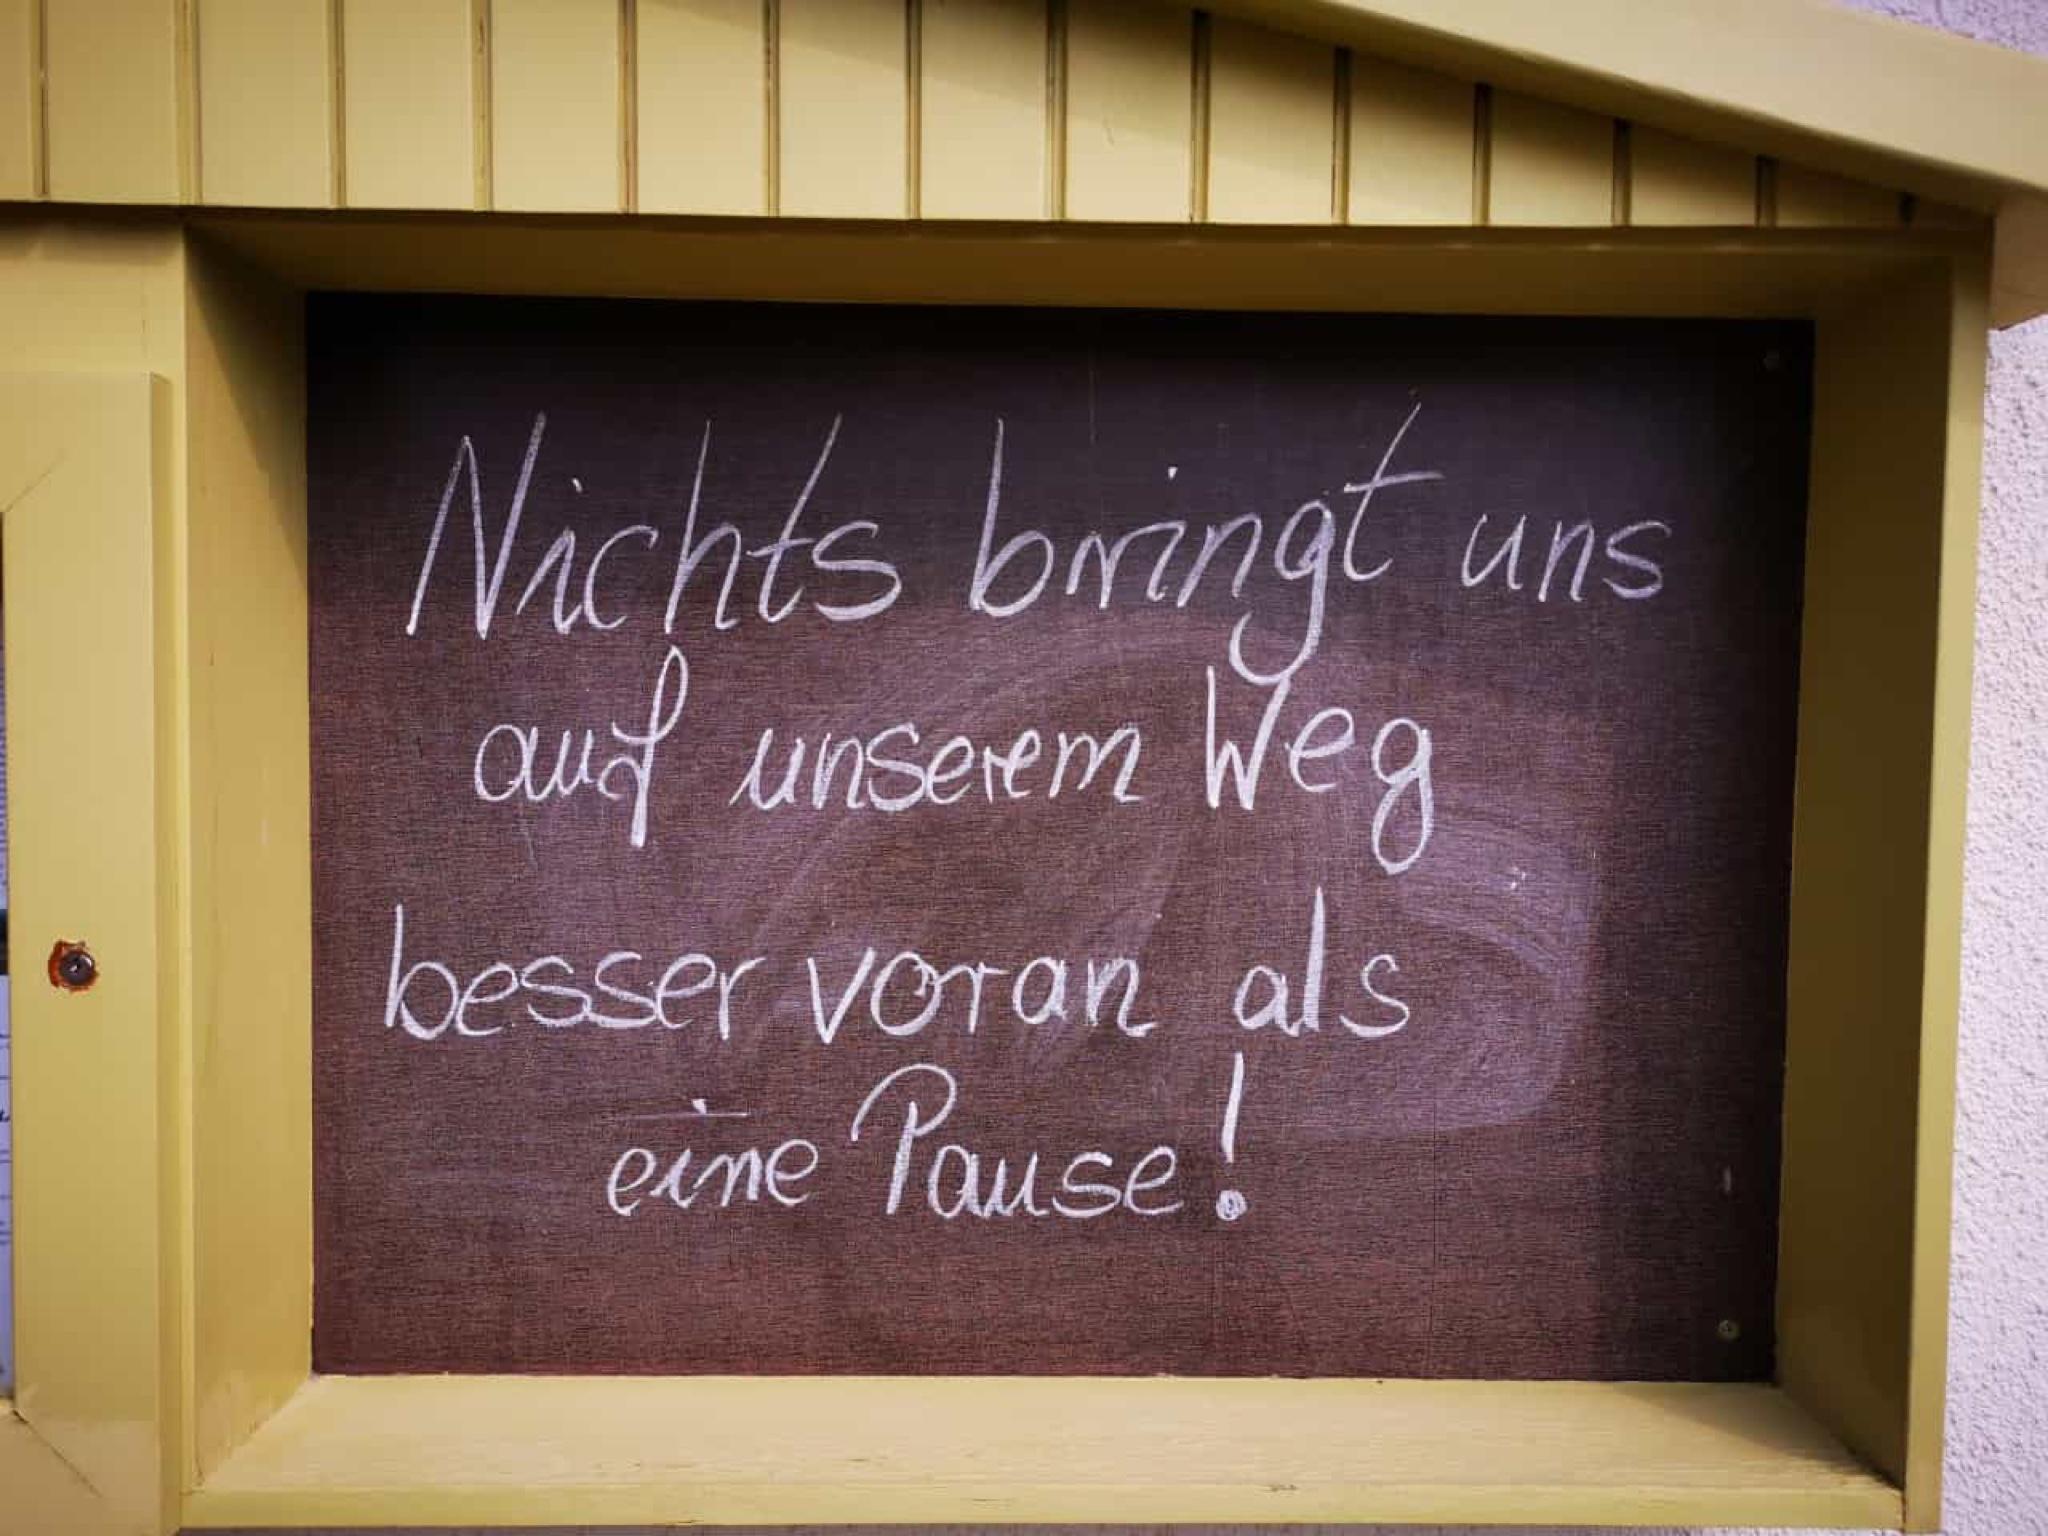 Nichts bringt uns
auf unserem Weg
besser voran als
eine Pause!